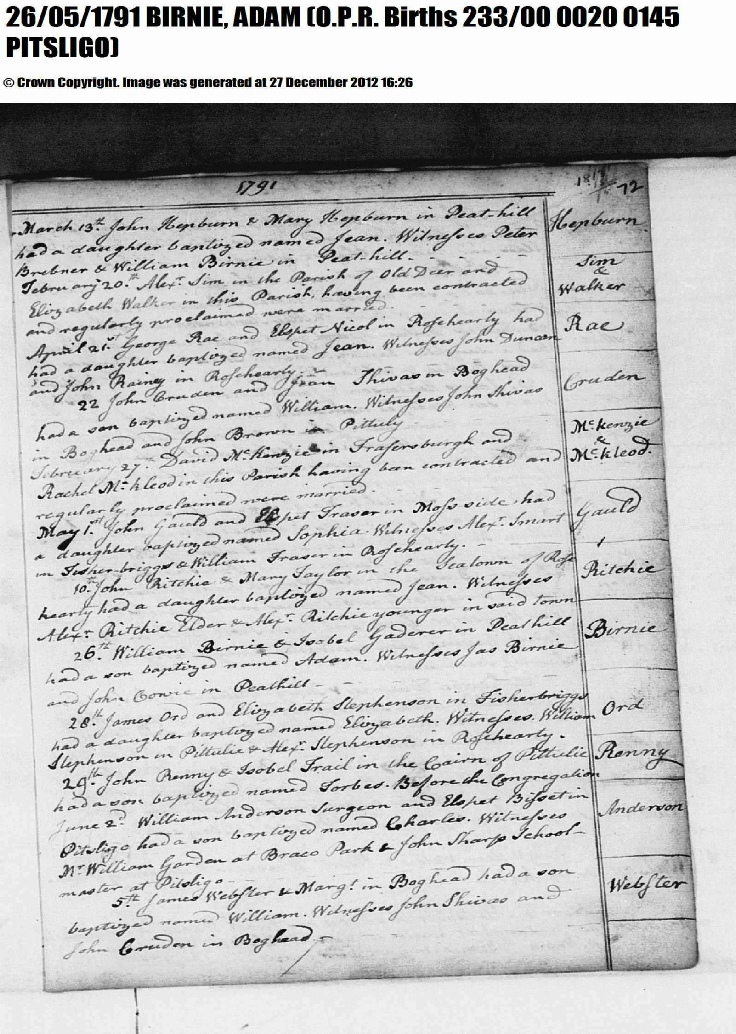 26/05/1791 BIRNIE, ADAM (O.P.R. Births 233/00 0020 0145
PITSLIGO)
© Crown Copyright. Image was generated at 27 December 2012 16:26
1791
72
March 13th John Hepburn & Mary Hepburn in Peat-hill
Hepburn
had a daughter baptized named Jean. Witnesses Peter
Brebner & William Birnie in Peat-hill.
February 20th Alexr Sim in the Parish of Old Deer and
Sim
&
Walker
Elizabeth Walker in this Parish, having been contracted
and regularly proclaimed were married.
April 21st George Rae and Elspet Nicol in Rosehearty had
Rae
had a daughter baptized named Jean. Witnesses John Duncan
and John Rainy in Rosehearty
22 John Cruden and Jean Shivas in Boghead
Cruden
had a son baptized named William. Witnesses John Shivas
in Boghead and John Brown in Pittuly
February 27th David McKenzie in Frasersburgh and
McKenzie
&
McKleod.
Rachel McKleod in this Parish having been contracted and
regularly proclaimed were married
May 1st John Gauld and Elspet Fraser in Moss side had
Gauld
a daughter baptized named Sophia. Witnesses Alexr Smart
in Fisher-briggs & William Fraser in Rosehearty.
10th John Ritchie & Mary Taylor in the Seatown of Rose
Ritchie
hearty had a daughter baptized named Jean. Witnesses
Alexr Ritchie Elder & Alexr Ritchie younger in said town
26th William Birnie & Isobel Gaderer in Peathill
Birnie
had a son baptized named Adam. Witnesses Jas Birnie
and John Cowie in Peathill
28th James Ord and Elizabeth Stephenson in Fisherbriggs
Ord
had a daughter baptized named Elizabeth. Witnesses. William
Stephenson in Pittulie & Alexr Stephenson in Rosehearty.
29th John Renny & Isobel Trail in the Cairn of Pittulie
Renny
had a son baptized named Forbes. Before the Congregation
June 2d William Anderson Surgeon and Elspet Bisset in
Anderson
Pitsligo had a son baptized named Charles. Witnesses
Mr William Garden at Braco Park & John Sharp School-
master at Pitsligo
5th James Webster & Margt in Boghead had a son
Webster
baptized named William. Witnesses John Shivas and
John Cruden in Boghead